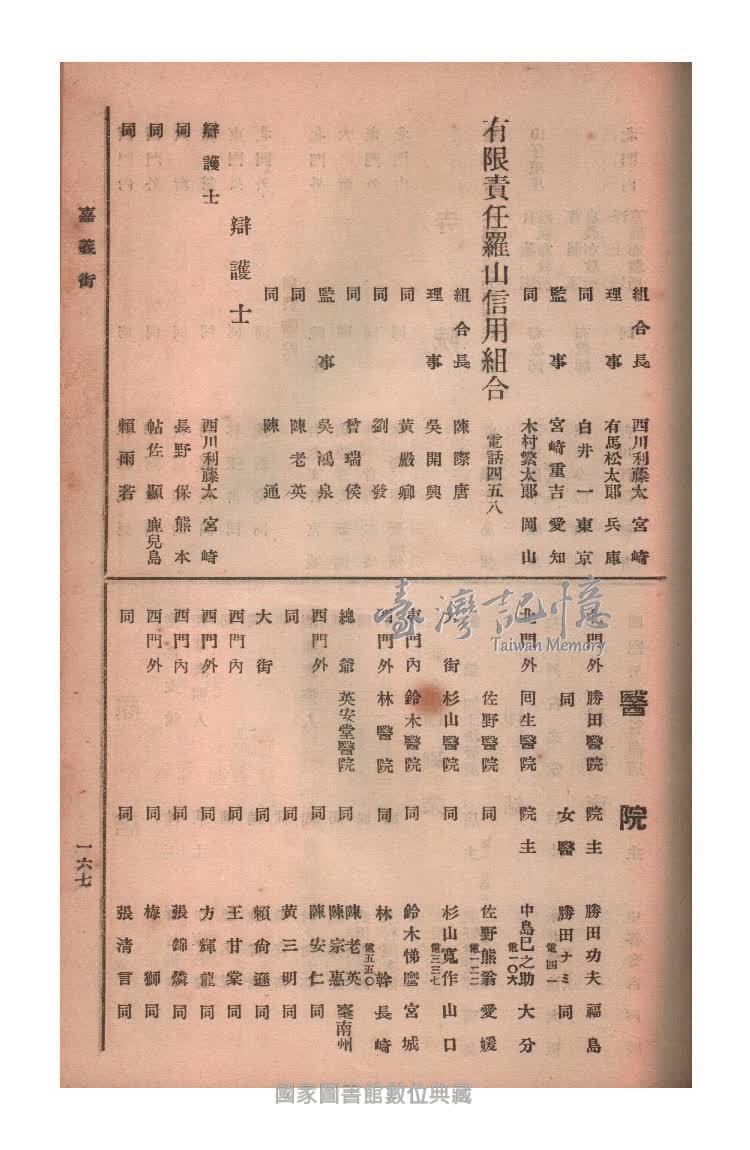 組合長 西川利藤太 宮崎
理事 有馬松太郎 兵庫
同 白井一 東京
監事 宮崎重吉 愛知
同 木村繁太郎 岡山
有限責任羅山信用組合 電話四五八
組合長 陳際唐
理事 吳開興
同 黃嚴卿
同 劉發
同 曾瑞侯
監事 吳鴻泉
同 陳老英
同 陳通
辯護士
辯護士 西川利藤太 宮崎
同 長野保 熊本
同 帖佐顯 鹿兒島
同 賴雨若
醫院
門外 勝田醫院 院主 勝田功夫 福島
同 女醫 勝田ナミ 同
電四一
北門外 回生醫院 院主 中島巳之助 大分
電一〇六
佐野醫院 同 佐野熊翁 愛媛
電一二二
街 杉山醫院 同 杉山寬作 山口
電三三七
東門內 鈴木醫院 同 鈴木悌 宮城
西門外 林醫院 同 林幹 長崎
總爺 英安堂醫院 同 陳老英 陳宗惠 臺南州
電五五〇
西門外 同 陳安仁 同
同 同 黃三明 同
大街 同 賴尙遜 同
西門內 同 王甘棠 同
西門外 同 方輝龍 同
西門內 同 張錦燐 同
西門外 同 梅獅 同
同 同 張淸言 同
嘉義街
一六七
臺灣記憶
Taiwan Memory
國家圖書館數位典藏